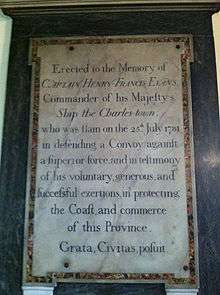 Erected to the Memory of
CAPTAIN HENRY FRANCIS EVANS
Commander of his Majesty's
Ship the Charles-town,
who was slain on the 25th July 1781
in defending a Convoy against
a superior force, and in testimony
of his voluntary, generous, and
successful exertions, in protecting
the Coast, and commerce
of this Province.
Grata, Civitas, posuit